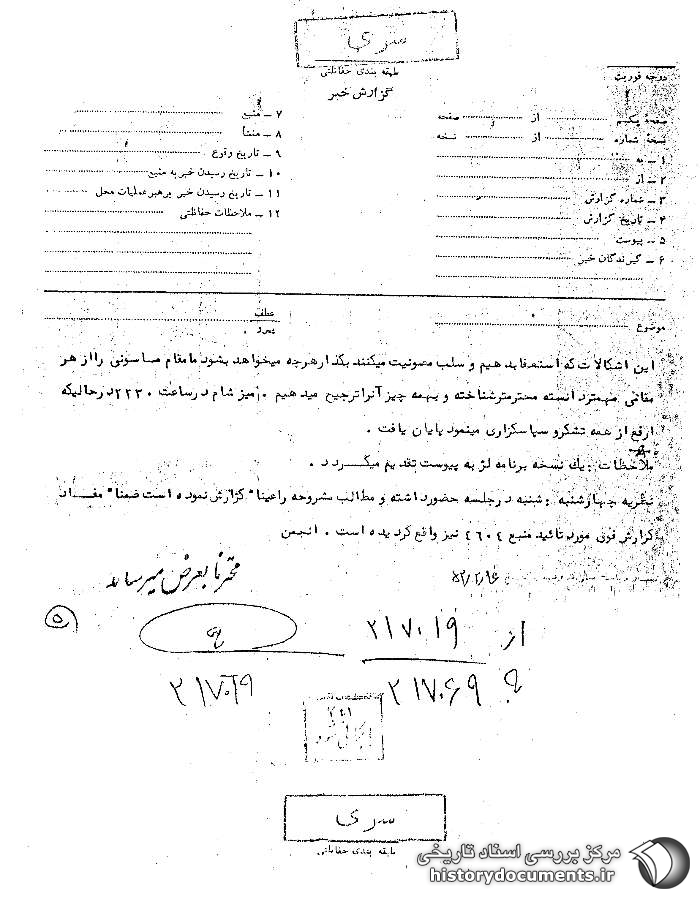 سری
طبقه بندی حفاظتی
گزارش خبر
درجه فوریت
صفحه یکم از صفحه
نسخه شماره از نسخه
۱ ـ به
۲ ـ از
۳ ـ شماره گزارش
۴ ـ تاریخ گزارش
۵ ـ پیوست
۶ ـ گیرندگان خبر
۷ ـ منبع
۸ ـ منشأ
۹ ـ تاریخ وقوع
۱۰ ـ تاریخ رسیدن خبر به منبع
۱۱ ـ تاریخ رسیدن خبر برهبر عملیات محل
۱۲ ـ ملاحظات حفاظتی
موضوع
عطف
این اشکالات که استعفا بدهیم و سلب مصونیت میکنند بگذار هرچه میخواهد بشود ما مقام ماسونی را از هر
مقامی مهمتر دانسته محترمتر شناخته و بهمه چیز آنرا ترجیح میدهیم . میز شام در ساعت ۲۲۳۰ در حالیکه
ارفع از همه تشکر و سپاسگزاری مینمود پایان یافت .
ملاحظات : یك نسخه برنامه لژ به پیوست تقدیم میگردد .
نظریه چهارشنبه : شنبه در جلسه حضور داشته و مطالب مشروحه را عینا" گزارش نموده است ضمنا" مفاد
گزارش فوق مورد تائید منبع ٤٦٠٤ نیز واقع گردیده است . انجمن
محترماً بعرض میرساند
۵
از ۲۱۷۰۱۹
به ۲۱۷۰۶۹
به
۲۱۷۰۱۹
بایگانی شود
سری
طبقه بندی حفاظتی
مرکز بررسی اسناد تاریخی
historydocuments.ir